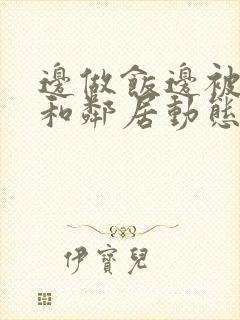 邊做飯邊被
和鄰居動態
伊寶兒